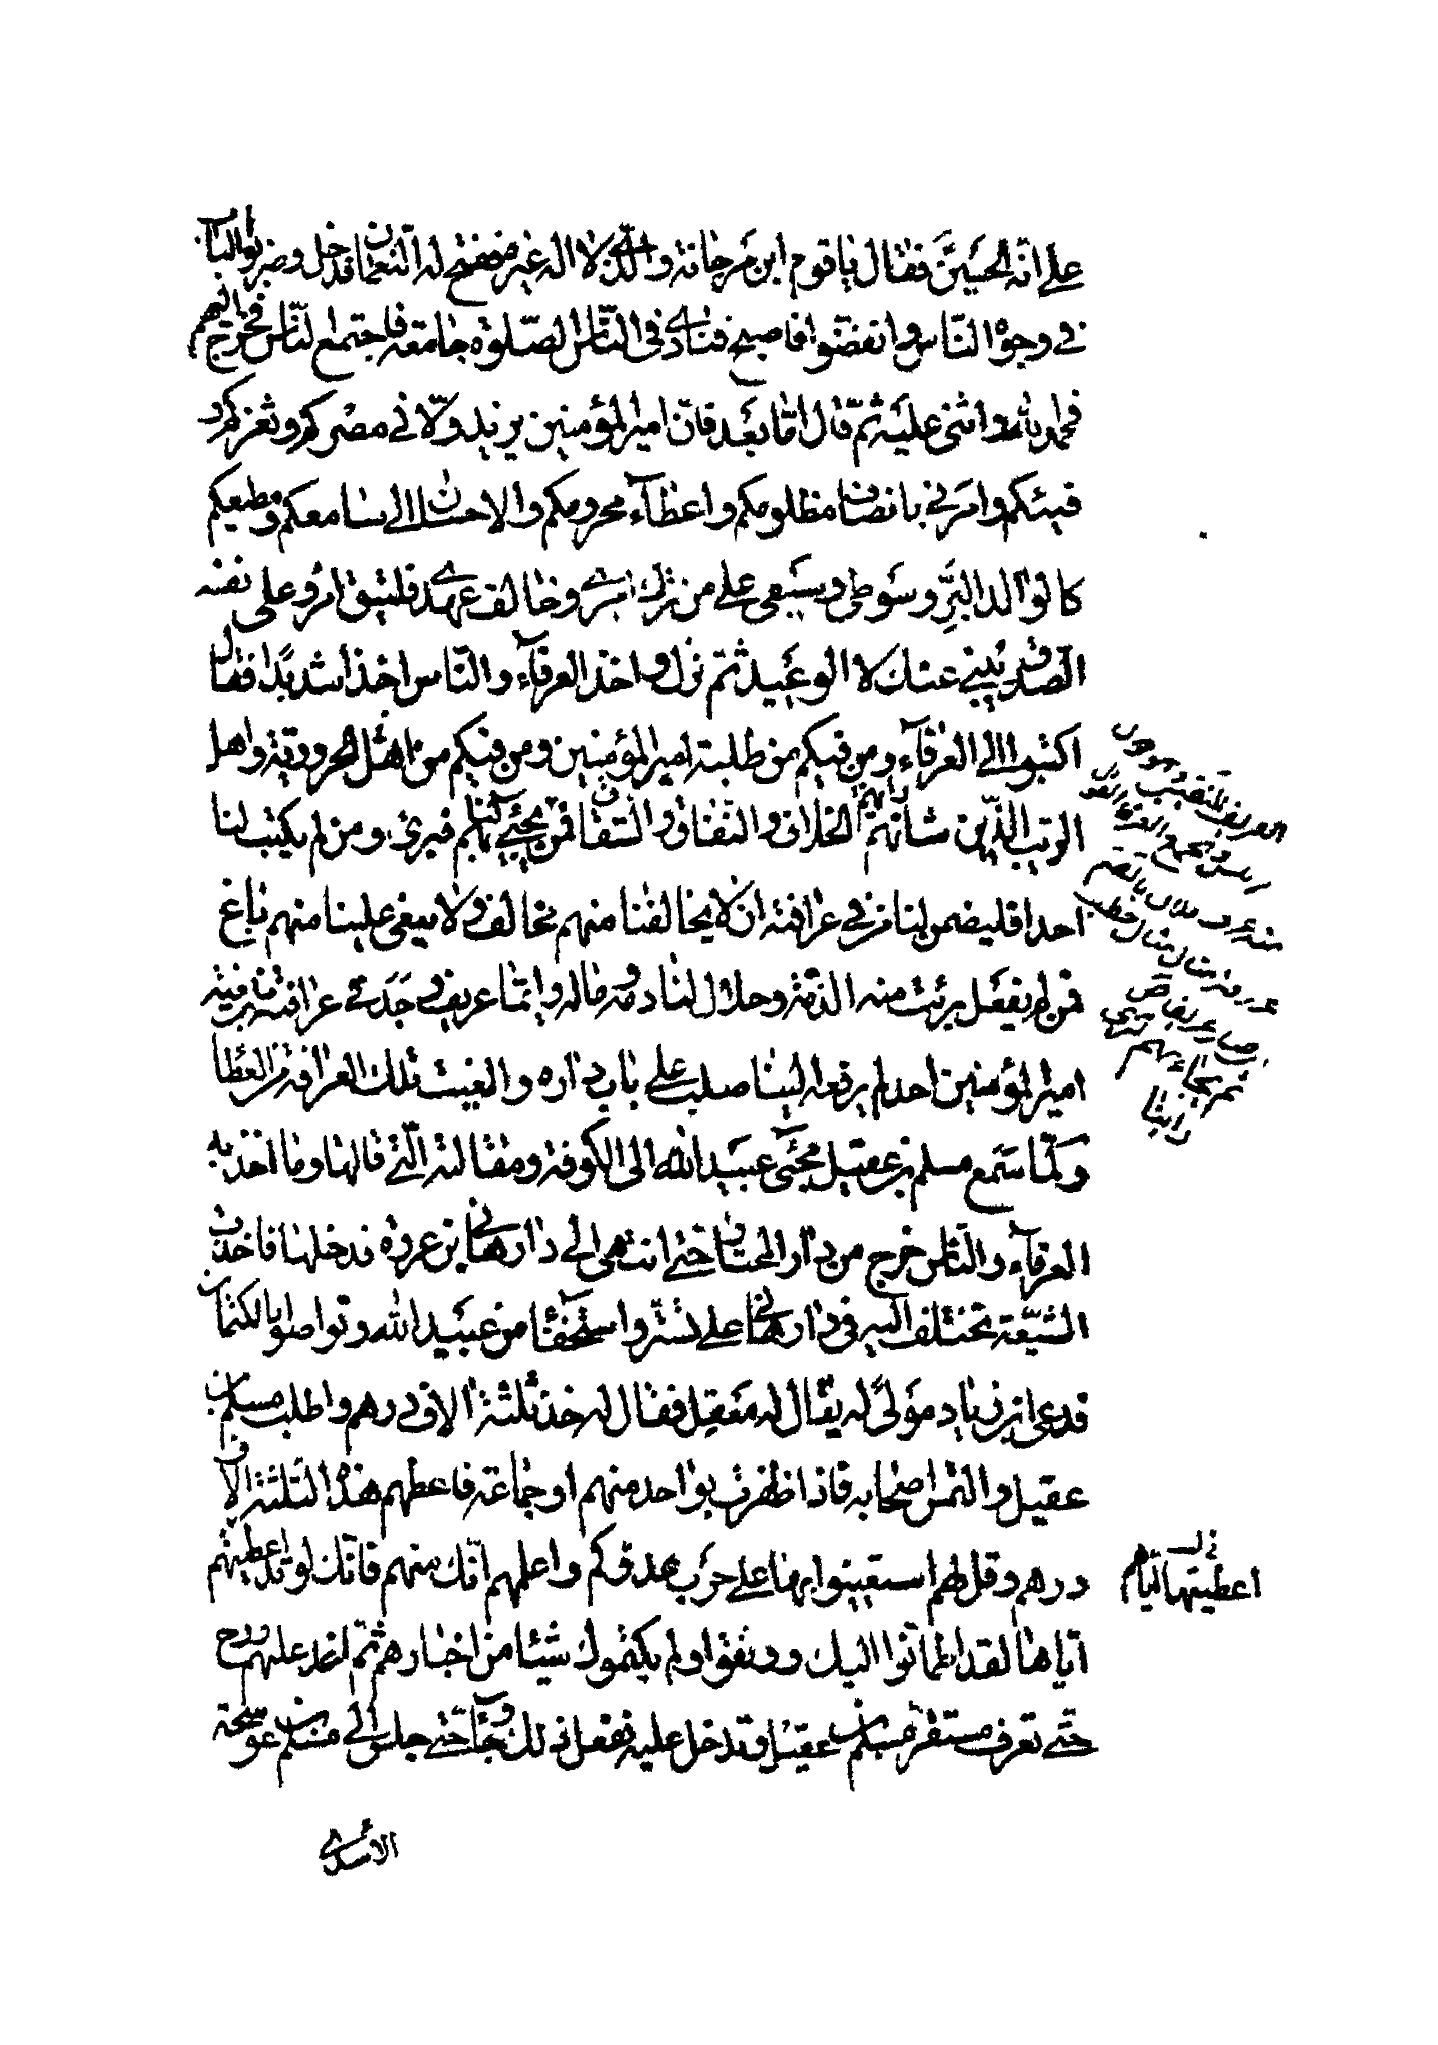 على انّه الحسين فقال يا قوم ابن مرجانة والّذى لا اله غيره ففتح له النعمان فدخل وضربوا الباب
فى وجوه النّاس وانفضّوا فاصبح فنادى فى النّاس الصّلوة جامعة فاجتمع النّاس فخرج اليهم
فحمد الله واثنى عليه ثمّ قال امّا بعد فانّ امير المؤمنين يزيد ولّانى مصركم وثغركم و
فيئكم وامرنى بانصاف مظلومكم واعطآء محرومكم والاحسان الى سامعكم ومطيعكم
كالوالد البَرّ وسَوطى وسيفى على من ترك امرى وخالف عهدى فليتق امرؤ على نفسه
الصّدق ينبئ عنك لا الوعيد ثمّ نزل واخذ العرفآء والنّاس اخذا شديدا فقال
اكتبوا الى العرفآء ومن فيكم من طلبة امير المؤمنين ومن فيكم من اهل الحرورية واهل
الريب الّذين شانهم الخلاف والنفاق والشقاق فمن يجئ بهم لنا فبرئ ومن لم يكتب لنا
احدا فليضمن لنا من فى عرافته ان لا يخالفنا منهم مخالف ولا يبغى علينا منهم باغ
فمن لم يفعل برئت منه الذمّة وحلال لنا دمه وماله وايّما عريف وجد فى عرافته من بغية
امير المؤمنين احد لم يرفعه الينا صلب على باب داره والغيت تلك العرافة من العطآ
ولمّا سمع مسلم بن عقيل مجئ عبيد الله الى الكوفة ومقالته الّتى قالها وما اخذ به
العرفآء والنّاس خرج من دار المختار حتّى انتهى الى دار هانى بن عروة فدخلها فاخذت
الشيعة تختلف اليه فى دار هانى على تستّر واستخفآء من عبيد الله وتواصوا بالكتمان
فدعى ابن زياد مولىً له يقال له معقل فقال له خذ ثلثة الاف درهم واطلب مسلم بن
عقيل والتمس اصحابه فاذا ظفرت بواحد منهم او جماعة فاعطهم هذه الثلثة الاف
درهم وقل لهم استعينوا بها على حرب عدوّكم واعلمهم انّك منهم فانّك لو قد اعطيتهم
ايّاها لقد اطمانّوا اليك ووثقوا ولم يكتموك شيئا من اخبارهم ثمّ اغد عليهم ورح
حتّى تعرف مستقرّ مسلم بن عقيل وتدخل عليه ففعل ذلك وجآء حتّى جلس الى مسلم بن عوسجة
الأسدى
اعطيتها ايّاهم